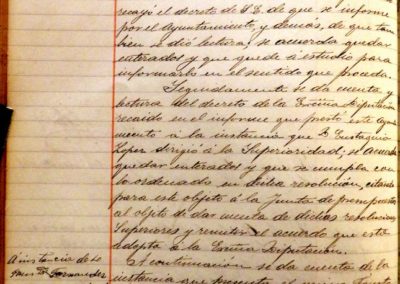 recayó el decreto de S.S. de que se informe
por el Ayuntamiento, y demás, de que tam
bien se dió lectura; se acuerda quedar
enterados y que quede á estudio para
informarlo en el sentido que proceda.
Seguidamente se da cuenta y
lectura del decreto de la Excma Diputación
recaido en el informe que prestó este Ayun
miento á la instancia que D. Eustaquio
Lopez dirigió á la Superioridad; se acuerda
quedar enterados y que se cumpla con
lo ordenado en dicha resolución, citando
para este objeto á la Junta de presupuestos
al objeto de dar cuenta de dichas resoluciones
Superiores y remitir el acuerdo que este
adopte á la Excma Diputación.
A instancia de
Fernandez
A continuación se da cuenta de la
instancia que presenta el vecino